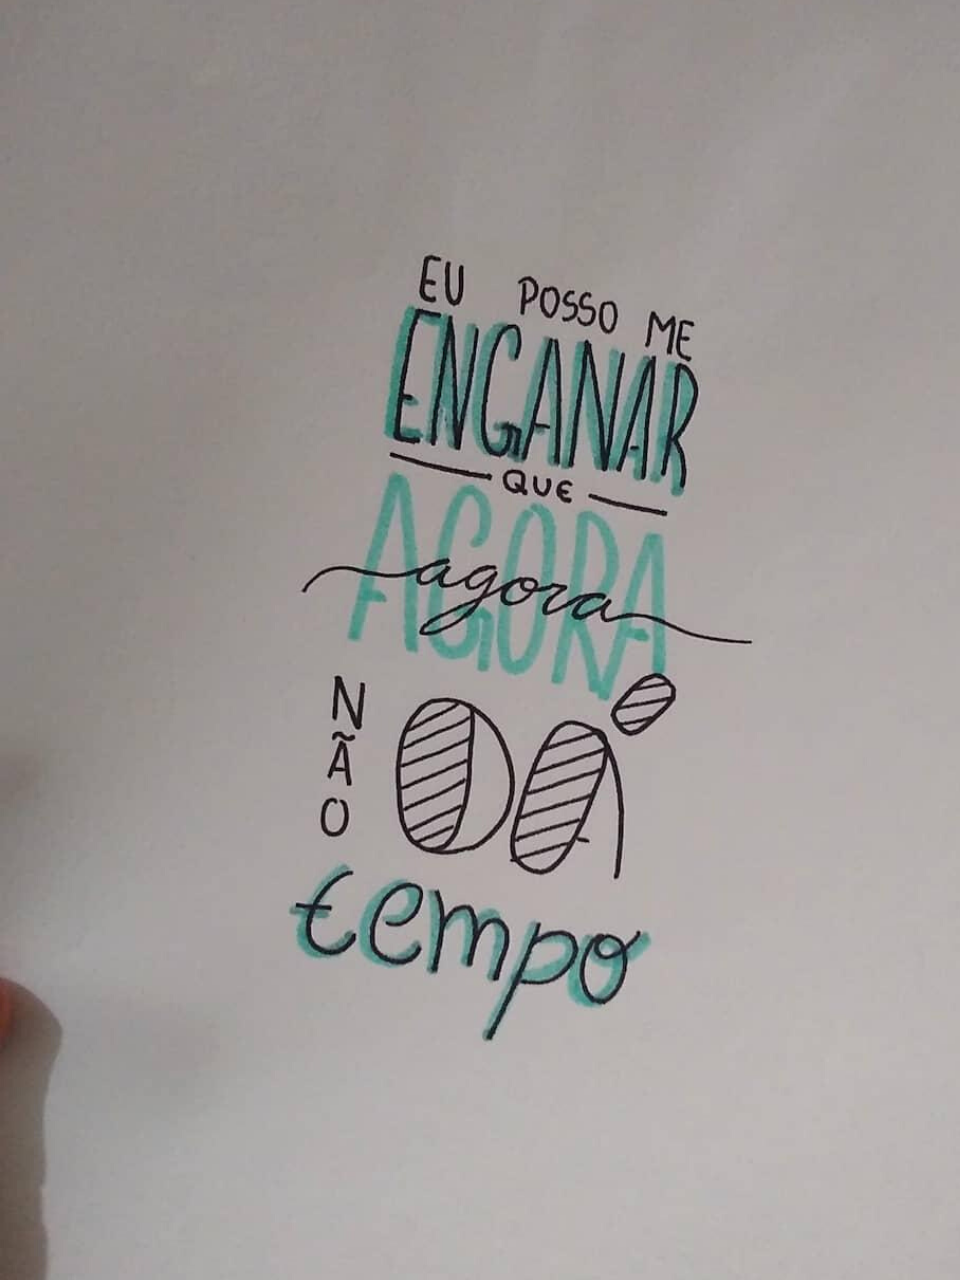 EU POSSO ME
ENGANAR
QUE
AGORA
agora
NÃO DÁ
tempo